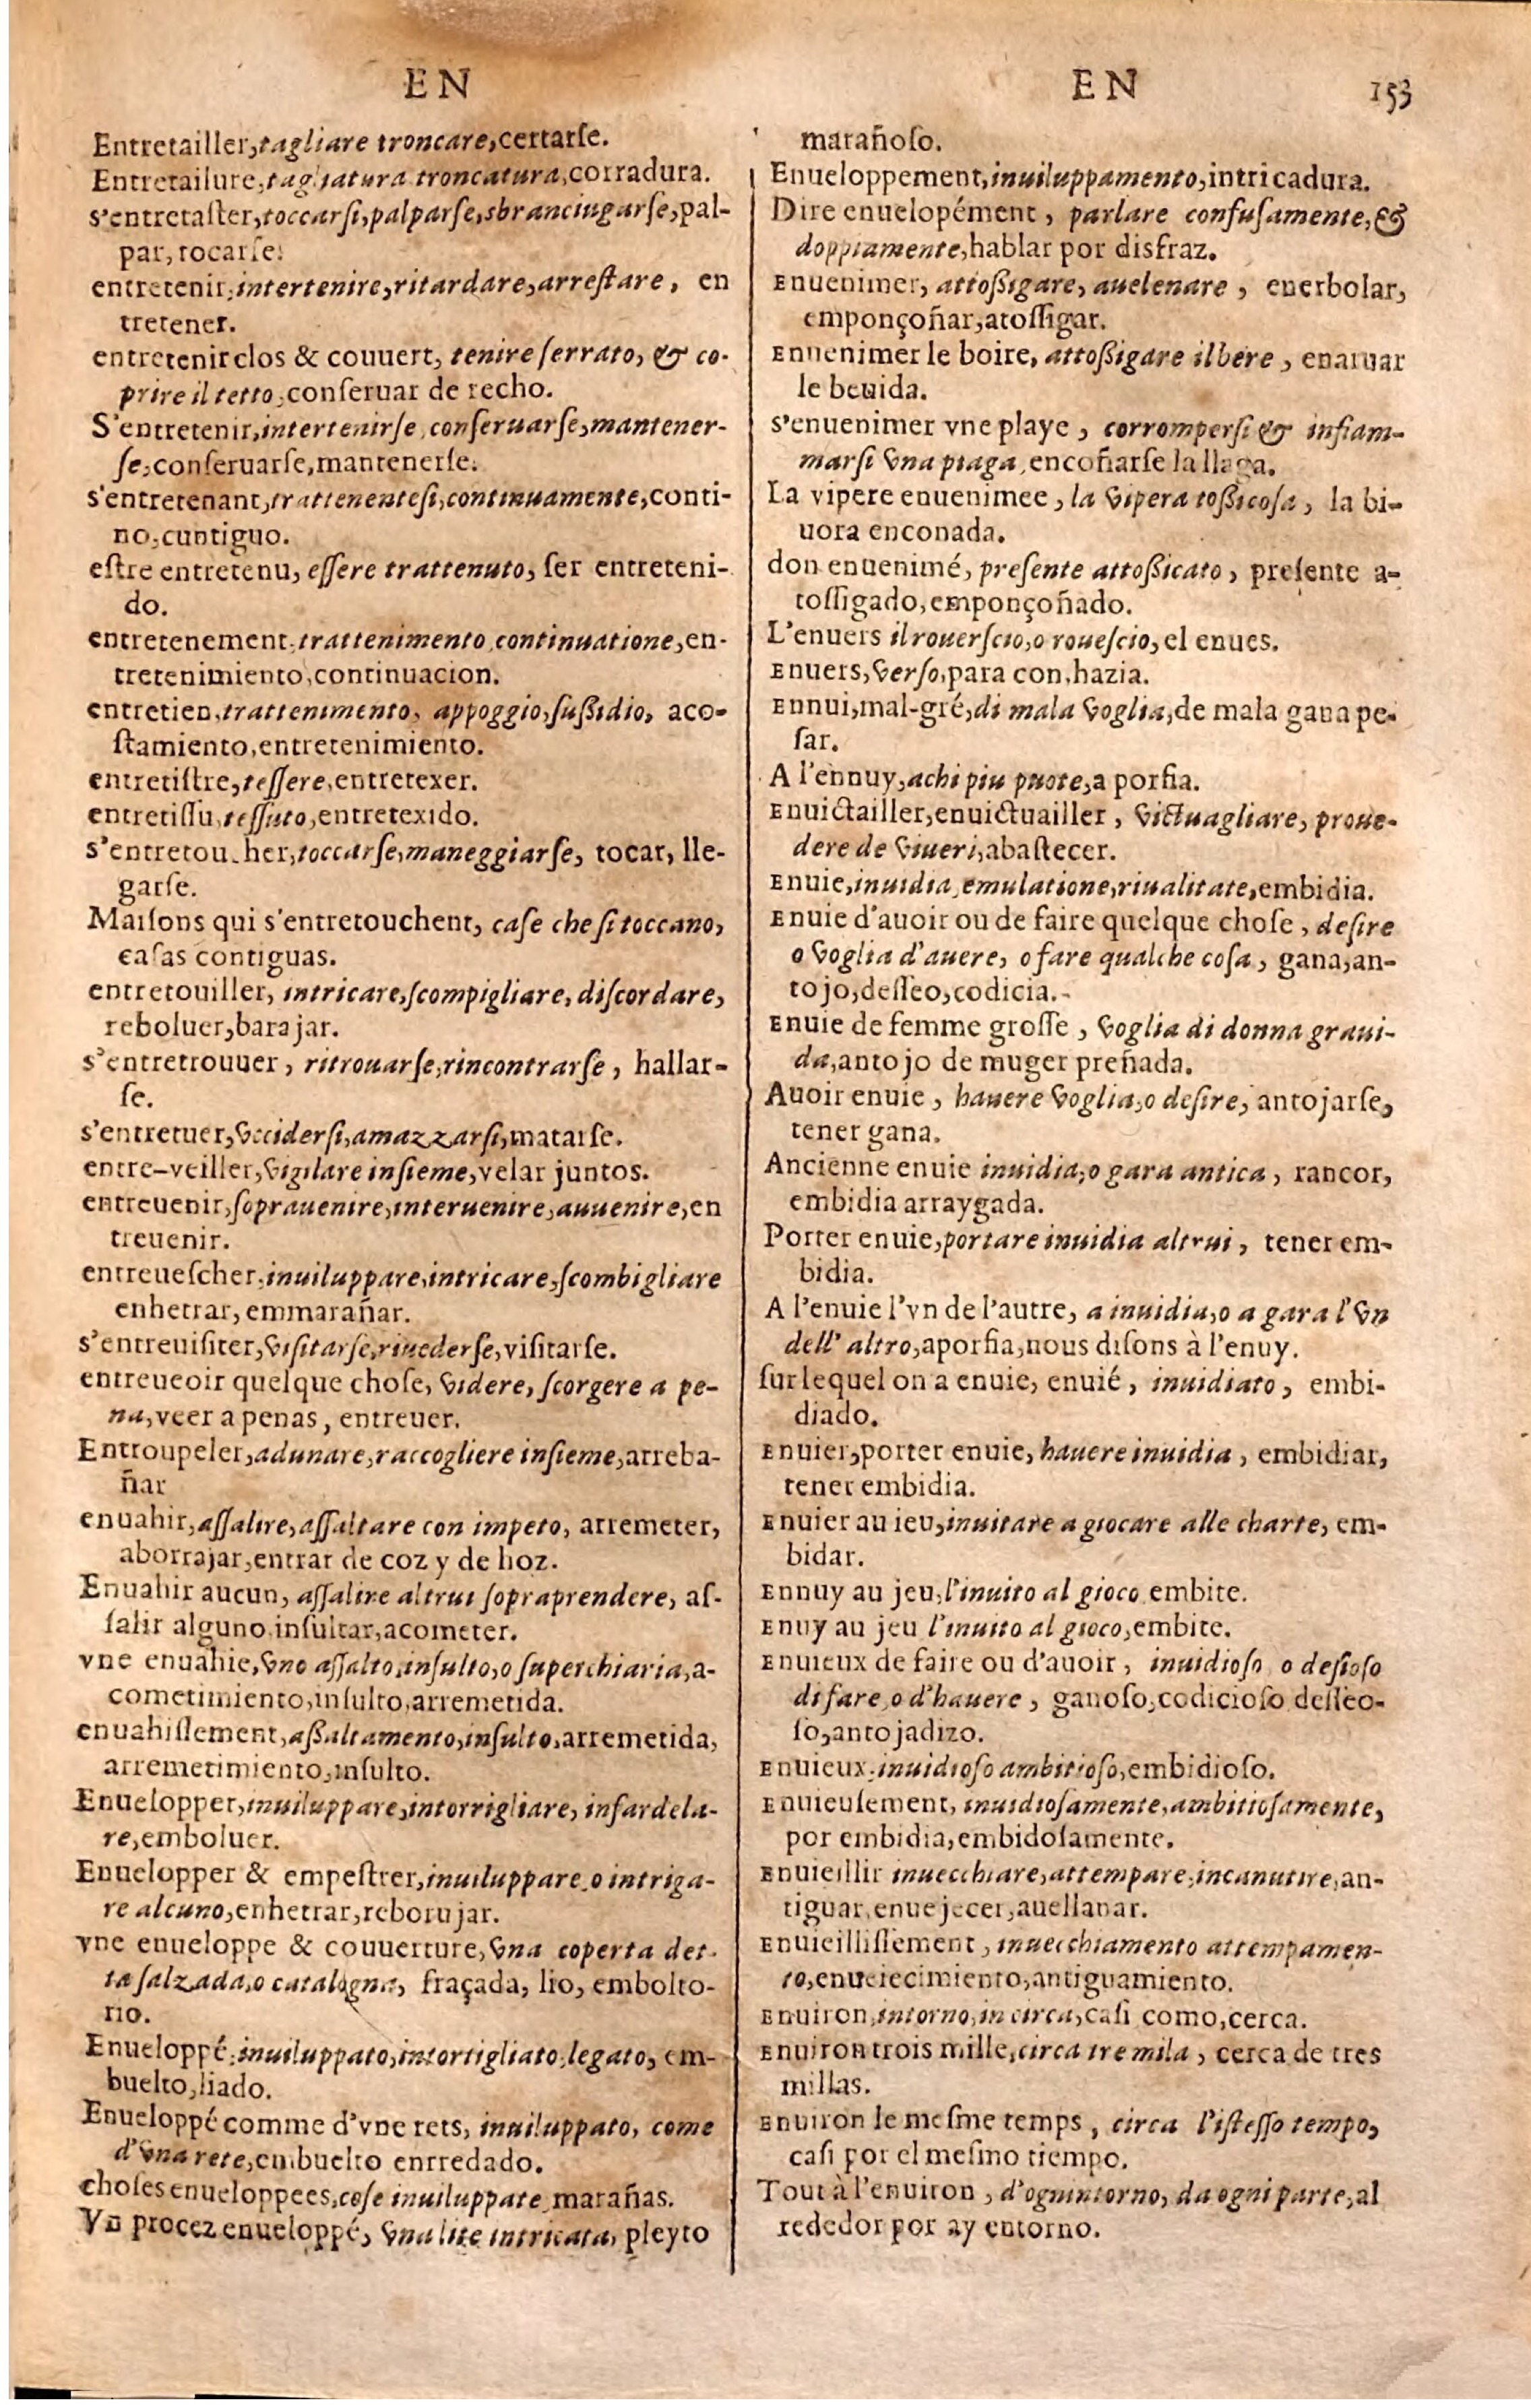 EN
Entretailler, tagliare troncare, certarſe.
Entretailure, tagliatura troncatura, corradura.
s'entretaſter, toccarſi, palparſe, sbranciugarſe, pal-
par, tocarſe.
entretenir, intertenire, ritardare, arreſtare, en
tretener.
entretenir clos & couuert, tenire ſerrato, & co-
prire il tetto, conſeruar de recho.
S'entretenir, intertenirſe, conſeruarſe, mantener-
ſe, conſeruarſe, mantenerſe.
s'entretenant, trattenenteſi, continuamente, conti-
no, cuntiguo.
eſtre entretenu, eſſere trattenuto, ſer entreteni-
do.
entretenement, trattenimento, continuatione, en-
tretenimiento, continuacion.
entretien, trattenimento, appoggio, ſußidio, aco-
ſtamiento, entretenimiento.
entretiſtre, teſſere, entretexer.
entretiſſu, teſſuto, entretexido.
s'entretou her, toccarſe, maneggiarſe, tocar, lle-
garſe.
Maiſons qui s'entretouchent, caſe che ſi toccano,
caſas contiguas.
entretouiller, intricare, ſcompigliare, diſcordare,
reboluer, barajar.
s'entretrouuer, ritrouarſe, rincontrarſe, hallar-
ſe.
s'entretuer, vcciderſi, amazzarſi, matarſe.
entre-veiller, vigilare inſieme, velar juntos.
entreuenir, ſoprauenire, interuenire, auuenire, en
treuenir.
entreueſcher, inuiluppare, intricare, ſcombigliare
enhetrar, emmarañar.
s'entreuiſiter, viſitarſe, riuederſe, viſitarſe.
entreueoir quelque choſe, videre, ſcorgere a pe-
na, veer a penas, entreuer.
Entroupeler, adunare, raccogliere inſieme, arreba-
ñar
enuahir, aſſalire, aſſaltare con impeto, arremeter,
aborrajar, entrar de coz y de hoz.
Enuahir aucun, aſſalire altrui ſopraprendere, aſ-
ſalir alguno, inſultar, acometer.
vne enuahie, vno aſſalto, inſulto, o ſuperchiaria, a-
cometimiento, inſulto, arremetida.
enuahiſſement, aßaltamento, inſulto, arremetida,
arremetimiento, inſulto.
Enuelopper, inuiluppare, intorrigliare, infardela-
re, emboluer.
Enuelopper & empeſtrer, inuiluppare, o intriga-
re alcuno, enhetrar, reborujar.
vne enueloppe & couuerture, vna coperta det-
ta ſalzada, o catalogna, fraçada, lio, embolto-
rio.
Enueloppé, inuiluppato, intortigliato, legato, em-
buelto, liado.
Enueloppé comme d'vne rets, inuiluppato, come
d'vna rete, embuelto enrredado.
choſes enueloppees, coſe inuiluppate, marañas.
Vn procez enueloppé, vna lite intricata, pleyto
EN 153
marañoſo.
Enueloppement, inuiluppamento, intricadura.
Dire enuelopément, parlare confuſamente, &
doppiamente, hablar por disfraz.
Enuenimer, attoßigare, auelenare, enerbolar,
emponçoñar, atoſſigar.
Enuenimer le boire, attoßigare il bere, enaruar
le beuida.
s'enuenimer vne playe, corromperſi & infiam-
marſi vna piaga, encoñarſe la llaga.
La vipere enuenimee, la vipera toßicoſa, la bi-
uora enconada.
don enuenimé, preſente attoßicato, preſente a-
toſſigado, emponçoñado.
L'enuers il rouerſcio, o roueſcio, el enues.
Enuers, verſo, para con, hazia.
Ennui, mal-gré, di mala voglia, de mala gana pe-
ſar.
A l'ennuy, achi piu puote, a porfia.
Enuictailler, enuictuailler, victuagliare, proue-
dere de viueri, abaſtecer.
Enuie, inuidia, emulatione, riualitate, embidia.
Enuie d'auoir ou de faire quelque choſe, deſire
o voglia d'auere, o fare qualche coſa, gana, an-
tojo, deſſeo, codicia.
Enuie de femme groſſe, voglia di donna graui-
da, antojo de muger preñada.
Auoir enuie, hauere voglia, o deſire, antojarſe,
tener gana.
Ancienne enuie inuidia, o gara antica, rancor,
embidia arraygada.
Porter enuie, portare inuidia altrui, tener em-
bidia.
A l'enuie l'vn de l'autre, a inuidia, o a gara l'vn
dell' altro, aporfia, nous diſons à l'enuy.
ſur lequel on a enuie, enuié, inuidiato, embi-
diado.
Enuier, porter enuie, hauere inuidia, embidiar,
tener embidia.
Enuier au ieu, inuitare a giocare alle charte, em-
bidar.
Ennuy au jeu, l'inuito al gioco embite.
Enuy au jeu l'inuito al gioco, embite.
Enuieux de faire ou d'auoir, inuidioſo o deſioſo
di fare, o d'hauere, ganoſo, codicioſo deſſeo-
ſo, antojadizo.
Enuieux, inuidioſo ambitioſo, embidioſo.
Enuieuſement, inuidioſamente, ambitioſamente,
por embidia, embidoſamente.
Enuieillir inuecchiare, attempare, incanutire, an-
tiguar, enuejecer, auellanar.
Enuieilliſſement, inuecchiamento attempamen-
to, enueiecimiento, antiguamiento.
Enuiron, intorno, in circa, caſi como, cerca.
Enuiron trois mille, circa tre mila, cerca de tres
millas.
Enuiron le meſme temps, circa l'iſteſſo tempo,
caſi por el meſino tiempo.
Tout à l'enuiron, d'ognintorno, da ogni parte, al
rededor por ay entorno.